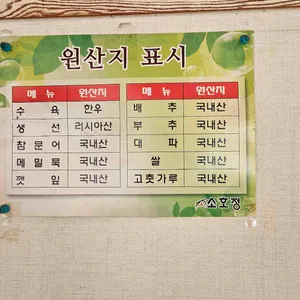 원산지 표시
메 뉴 원산지 메 뉴 원산지
수 육 한우 배 추 국내산
생 선 러시아산 부 추 국내산
참 문 어 국내산 대 파 국내산
메 밀 묵 국내산 쌀 국내산
깻 잎 국내산 고춧가루 국내산
소호정